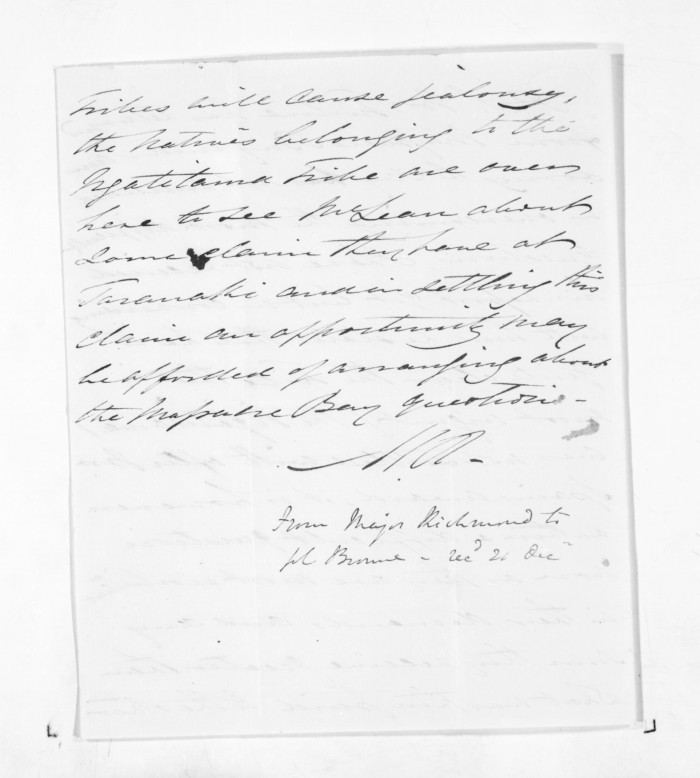 Tribes will cause jealousy,
the Natives belonging to the
Ngatitama Tribe are over
here to see McLean about
some claim they have at
Taranaki and in settling this
claim an opportunity may
be afforded of arranging about
the Massacre Bay question -
From Major Richmond to
Browne - recd 21 Decr